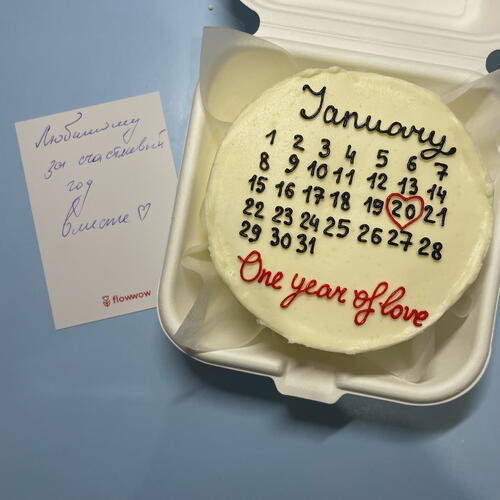 Любимому
за счастливый
год
вместе ♡
flowwow
January
1 2 3 4 5 6 7
8 9 10 11 12 13 14
15 16 17 18 19 20 21
22 23 24 25 26 27 28
29 30 31
One year of love